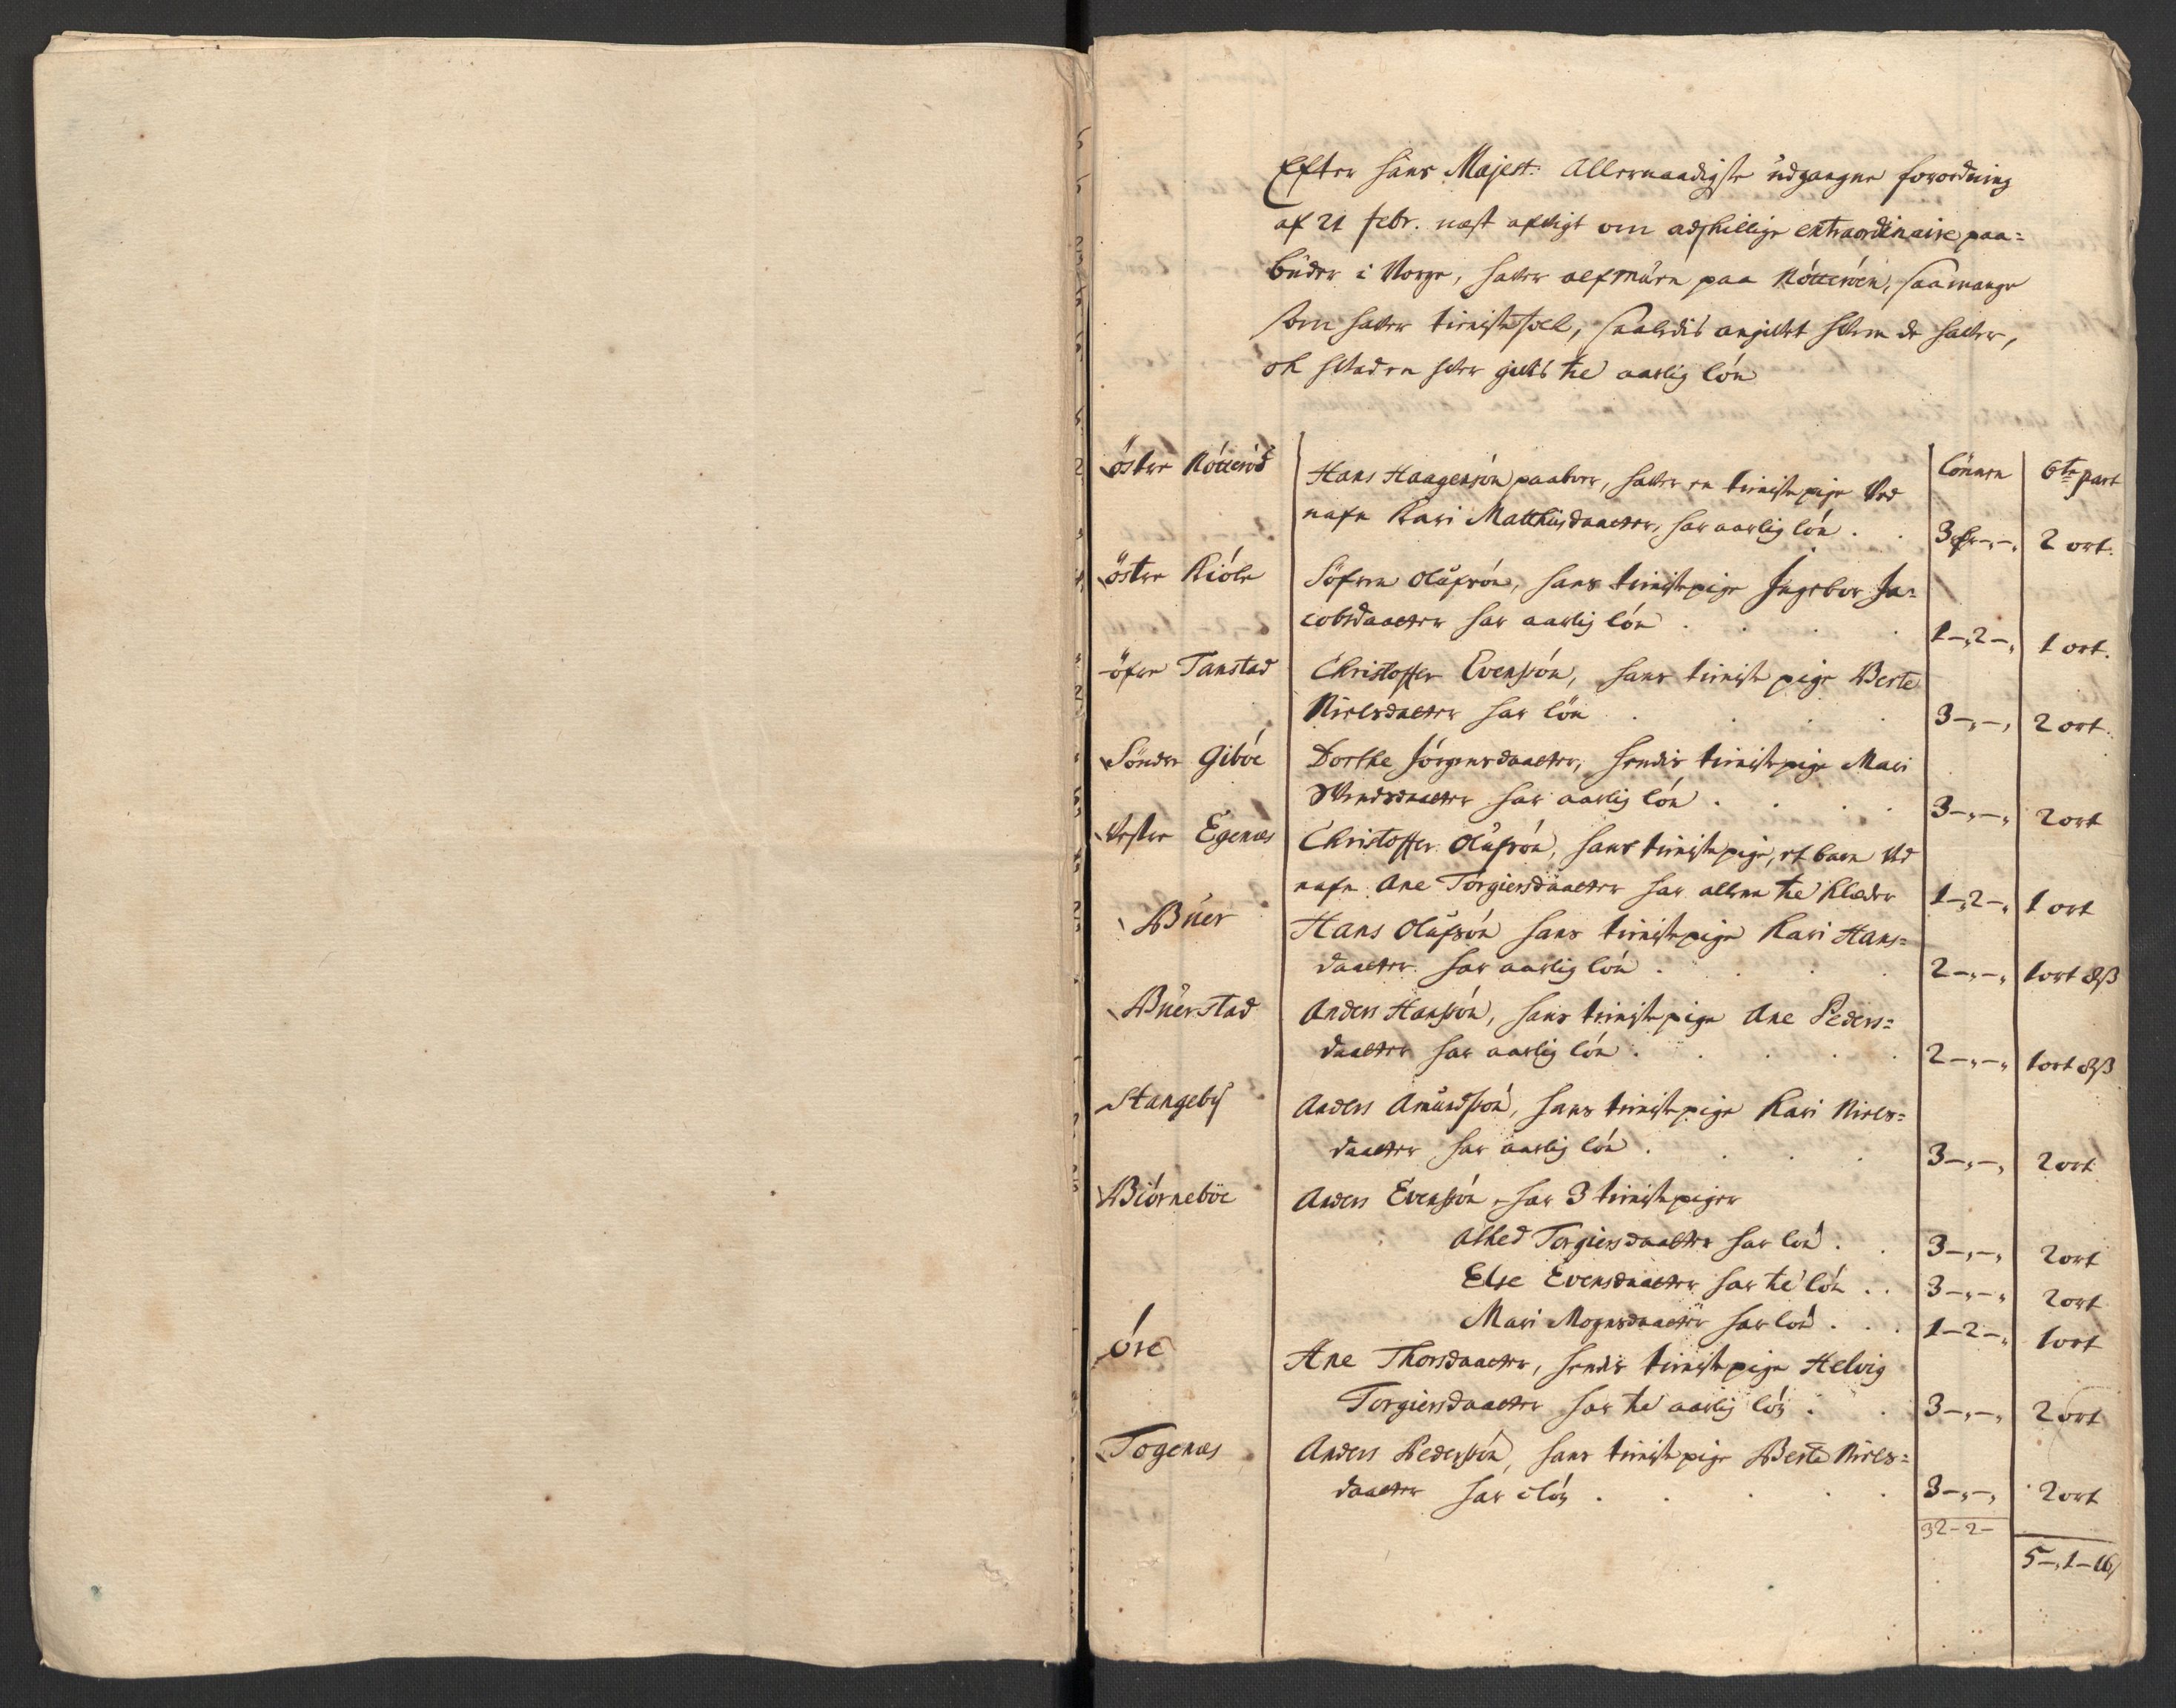 Efter hans Majest: Allernaadigste udgangne forordning
af 21 febr. nest afvigt om adskillige extraordinaire paa=
buder i Norge, hafver almuen paa Nótteróen, saamange
som hafver tienistefolk, saaledis angifvet hvem de hafver,
oh hvad en hver gifvis til aarlig lón
öster Nótteród
Hans Haagensón paaboer, hafver en tienistepige ved
lönnen
6te part
nafn Kari Matthiisdaatter, har aarlig lön . .
3 -„-„
2 ort.
öster Kióle
Söfren Olufsón, hans tienistepige Ingebor Ja=
cobsdaatter har aarlig lón . . . .
1-„2-„
1 ort.
öfre Tanstad
Christoffer Evensón, hans tienistepige Berte
Nielsdatter har lön . . . .
3-„-„
2 ort.
Sönder Gibóe
Dorthe Jörgensdaatter, hendis tienistepige Mari
daatter har aarlig lón . . . .
3-„-„
2 ort
Vester Egenæs
Christoffer Olufsón, hans tienistepige, et barn ved
nafn Ane Torgiersdaatter har allene til klæder
1-„2-„
1 ort
Buer
Hans Olufsón hans tienistepige Kari Hans=
daatter har aarlig lón . . . .
2-„-„
1 ort 8ß
Buerstad
Anders Hansón, hans tienistepige Ane Peders=
daatter har aarlig lón . . . . .
2-„-„
1 ort 8ß
Stangeby
Anders Amundsón, hans tienistepige Kari Niels=
daatter har aarlig lón . . . .
3-„-„
2 ort
Biörneböe
Anders Evensón, har 3 tienistepiger
Alhed Torgiersdaatter har lón . .
3-„-„
2 ort
Else Evensdaatter har til lón . .
3-„-„
2 ort
Mari Mogensdaatter har lón . . .
1-2-„
1 ort
óre
Ane Thorsdaatter, hendis tienistepige Helvig
Torgiersdaatter har til aarlig lón . .
3-„-„
2 ort
Togenæs
Anders Pedersón, hans tienistepige Berte Niels=
daatter har i lón . . . . .
3-„-„
2 ort
32-2-
5-„1-16